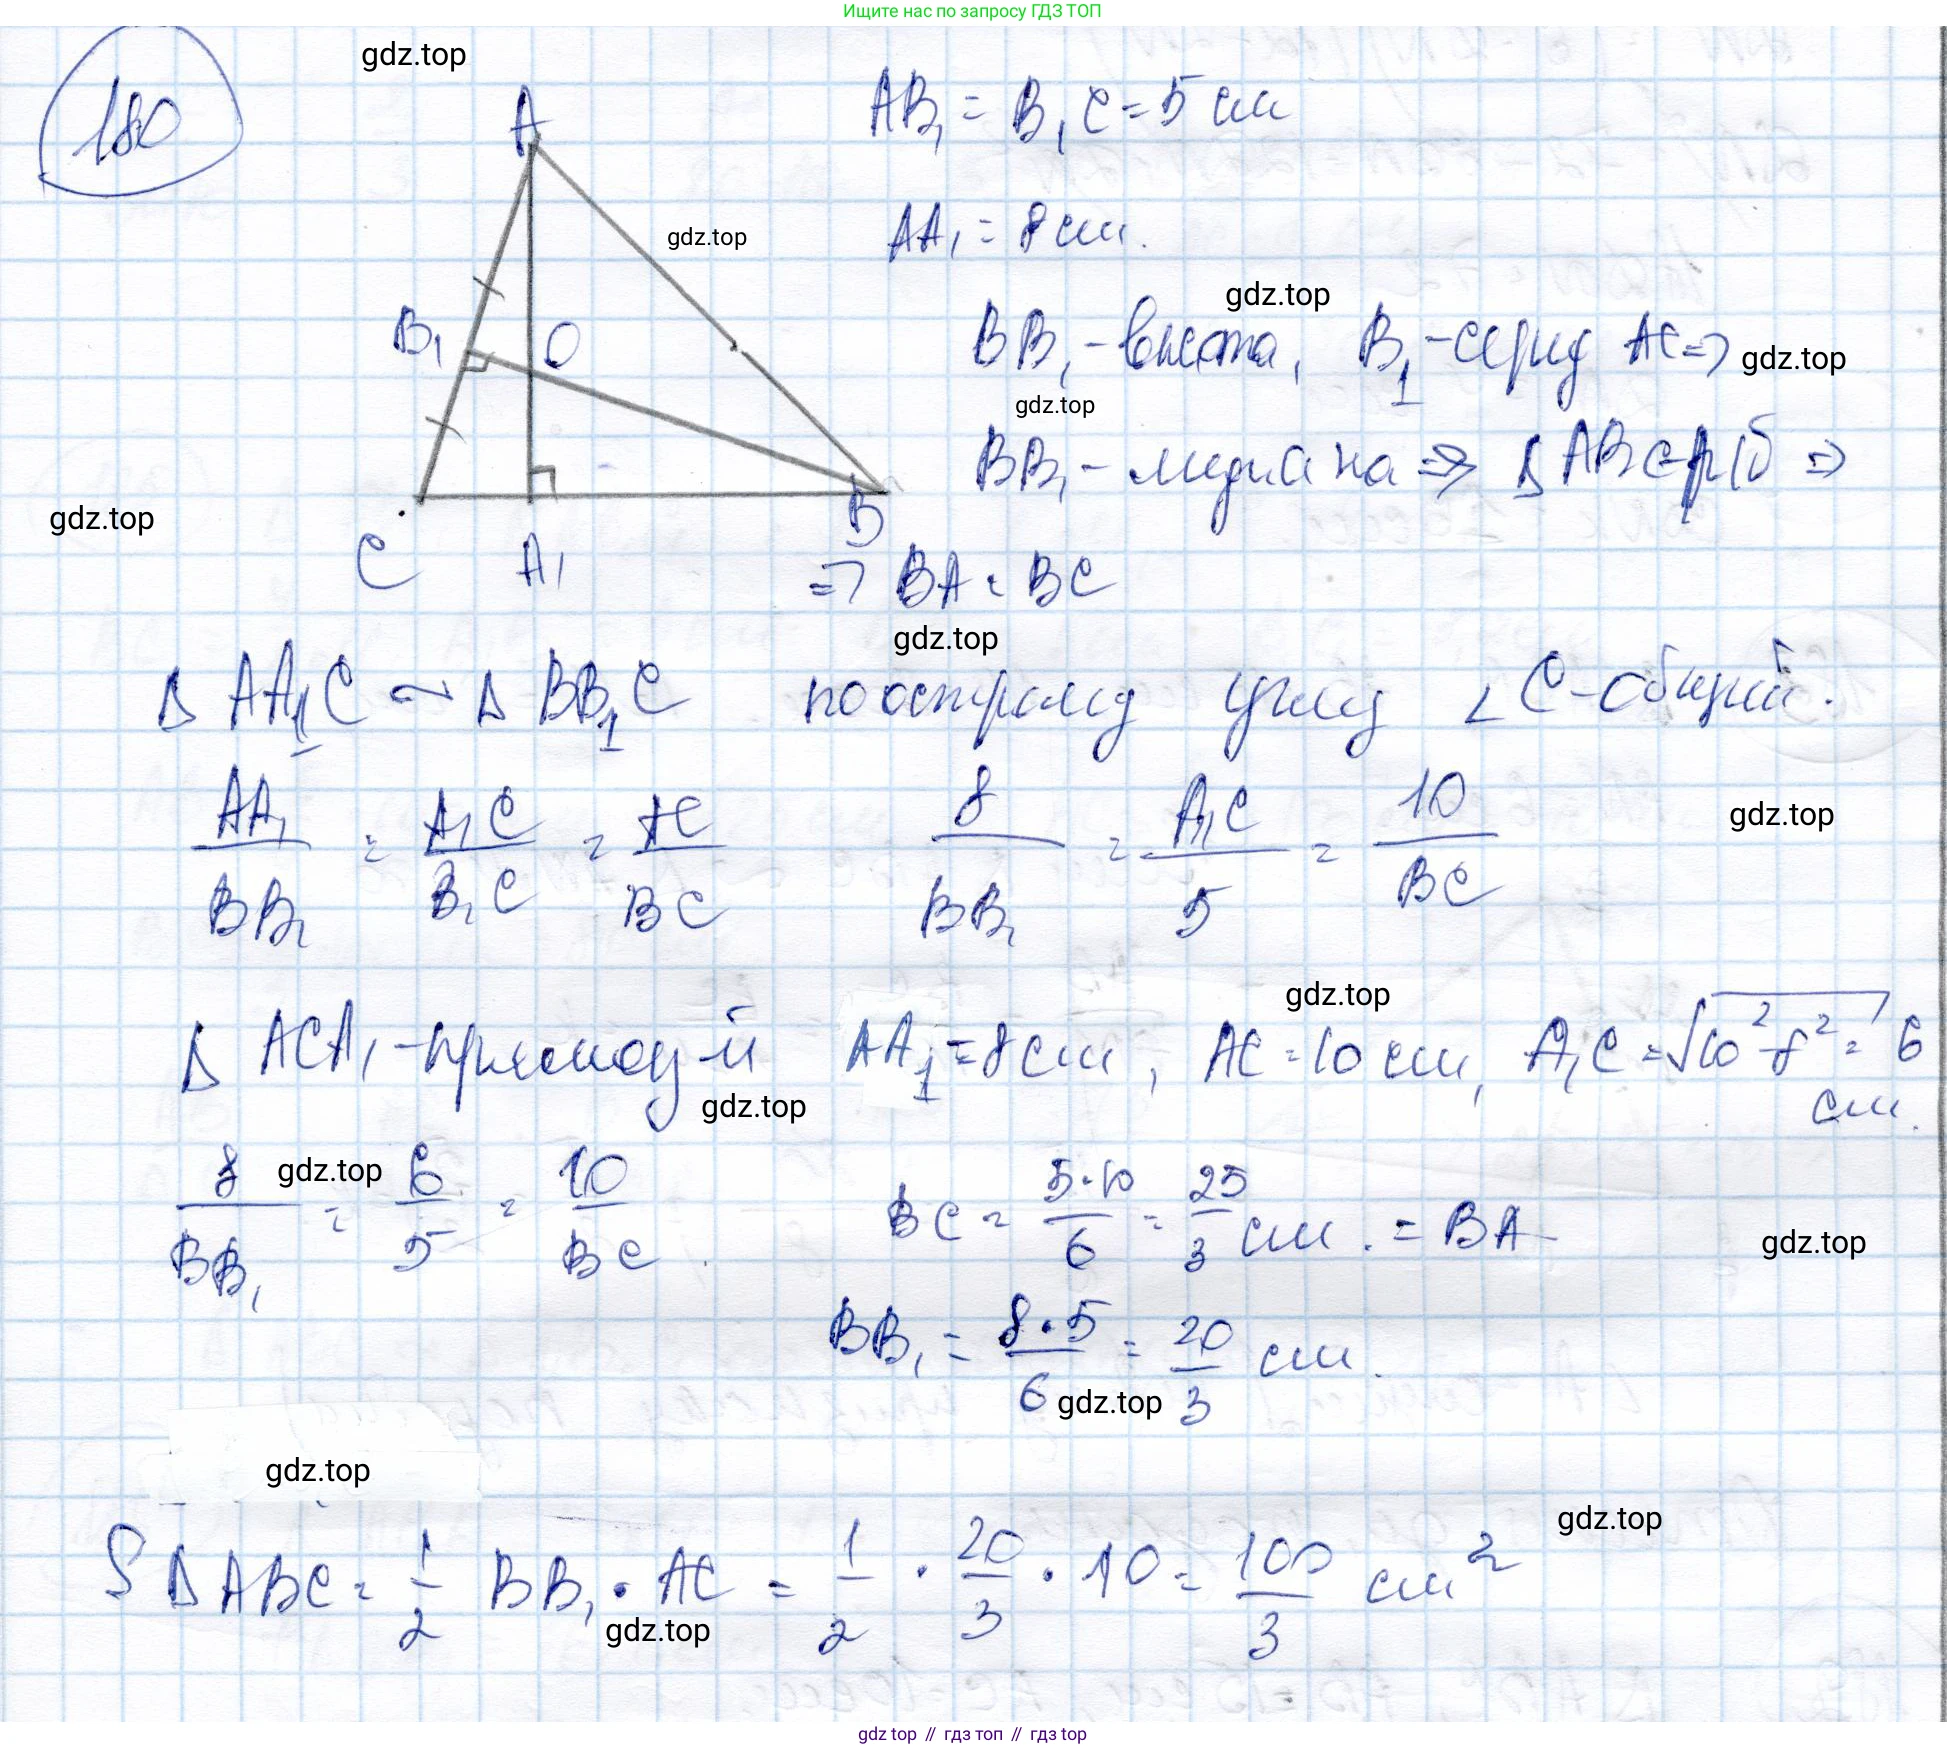 Ищите нас по запросу ГДЗ ТОП
180
gdz.top
A
AB₁ = B₁C = 5 см
gdz.top
AA₁ = 8 см.
gdz.top
B₁
O
BB₁ - высота, B₁ - серид AC ⇒
gdz.top
gdz.top
BB₁ - медиана ⇒ Δ ABC - р/б ⇒
gdz.top
C
A₁
B
⇒ BA = BC
gdz.top
Δ AA₁C ~ Δ BB₁C по острому углу ∠C - общий.
AA₁/BB₁ = A₁C/B₁C = AC/BC 8/BB₁ = A₁C/5 = 10/BC
gdz.top
gdz.top
Δ ACA₁ - прямоуг-й AA₁ = 8 см, AC = 10 см, A₁C = √10² - 8² = 6 см.
gdz.top
gdz.top
8/BB₁ = 6/5 = 10/BC. BC = 5·10/6 = 25/3 см. = BA
gdz.top
BB₁ = 8·5/6 = 20/3 см.
gdz.top
gdz.top
gdz.top
S Δ ABC = 1/2 BB₁ · AC = 1/2 · 20/3 · 10 = 100/3 см²
gdz.top
gdz top // гдз топ // gdz top